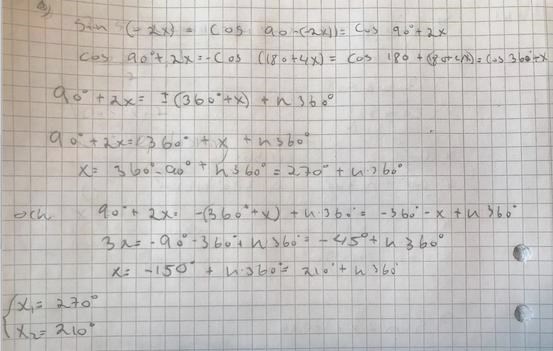 sin (-2x) = cos 90-(-2x)) = cos 90°+2x
cos 90°+2x = -cos (180+x) = cos 180+(180+x) = cos 360+x
90°+2x = ±(360°+x) + n360°
90°+2x = (360° + x + n360°
x = 360°-90° + n360° = 270° + n·360°
och 90° + 2x = -(360°+x) + n·360° = -360°-x + n360°
3x = -90°-360° + n360° = -45° + n360°
x = -150° + n·360° = 210° + n360°
{x₁ = 270°
x₂ = 210°